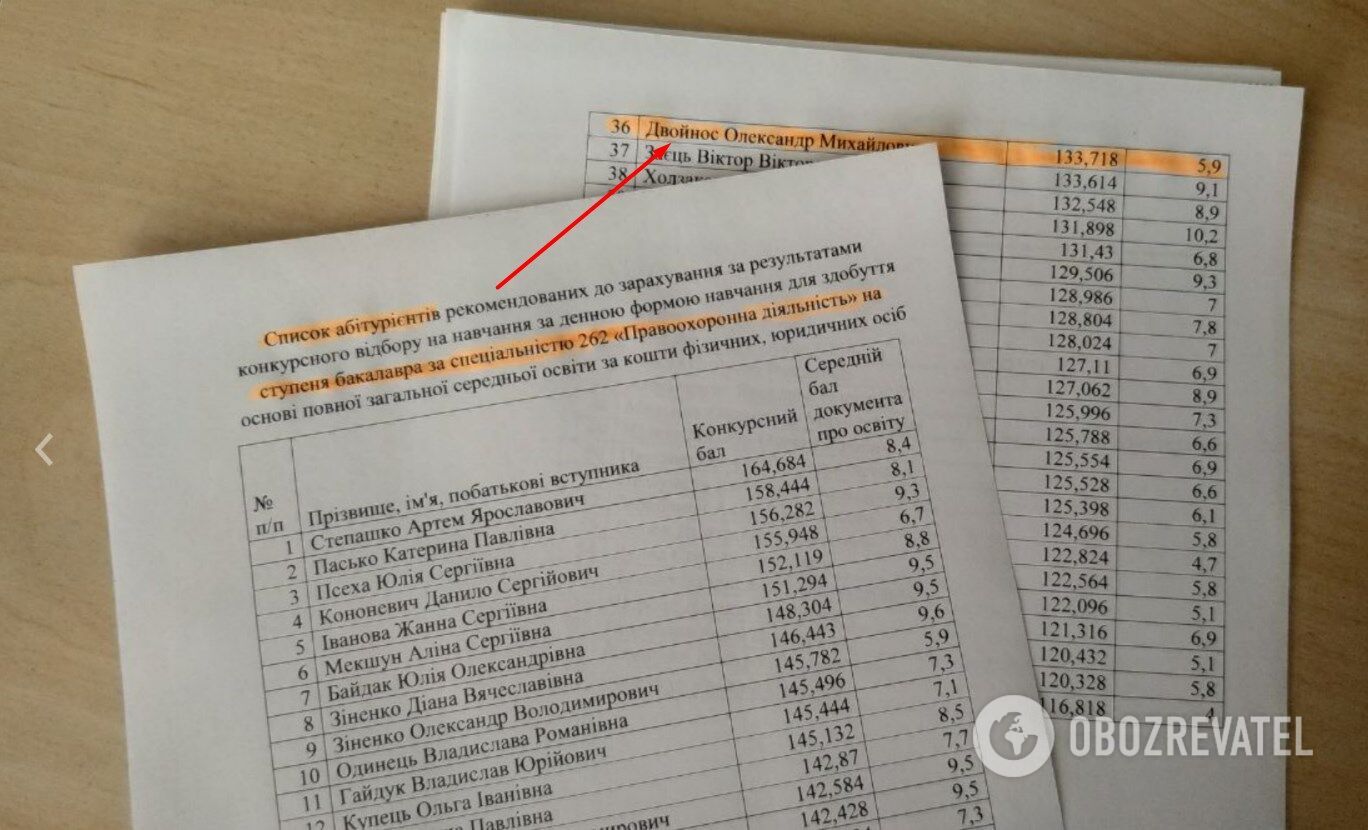 36 Двойнос Олександр Михайлови 133,718 5,9
37 Заєць Віктор Вікто 133,614 9,1
38 132,548 8,9
131,898 10,2
131,43 6,8
129,506 9,3
128,986 7
128,804 7,8
128,024 7
127,11 6,9
127,062 8,9
125,996 7,3
125,788 6,6
125,554 6,9
125,528 6,6
125,398 6,1
124,696 5,8
122,824 4,7
122,564 5,8
122,096 5,1
121,316 6,9
120,432 5,1
120,328 5,8
116,818 4
Список абітурієнтів рекомендованих до зарахування за результатами
конкурсного відбору на навчання за денною формою навчання для здобуття
ступеня бакалавра за спеціальністю 262 «Правоохоронна діяльність» на
основі повної загальної середньої освіти за кошти фізичних, юридичних осіб
№
п/п
Прізвище, ім'я, побатькові вступника
Конкурсний
бал
Середній
бал
документа
про освіту
1 Степашко Артем Ярославович 164,684 8,4
2 Пасько Катерина Павлівна 158,444 8,1
3 Псеха Юлія Сергіївна 156,282 9,3
4 Кононевич Данило Сергійович 155,948 6,7
5 Іванова Жанна Сергіївна 152,119 8,8
6 Мекшун Аліна Сергіївна 151,294 9,5
7 Байдак Юлія Олександрівна 148,304 9,5
8 Зіненко Діана Вячеславівна 146,443 9,6
9 Зіненко Олександр Володимирович 145,782 5,9
10 Одинець Владислава Романівна 145,496 7,3
11 Гайдук Владислав Юрійович 145,444 7,1
12 Купець Ольга Іванівна 145,132 8,5
Павлівна 142,87 7,7
142,584 9,5
142,428 9,5
7,3
OBOZREVATEL